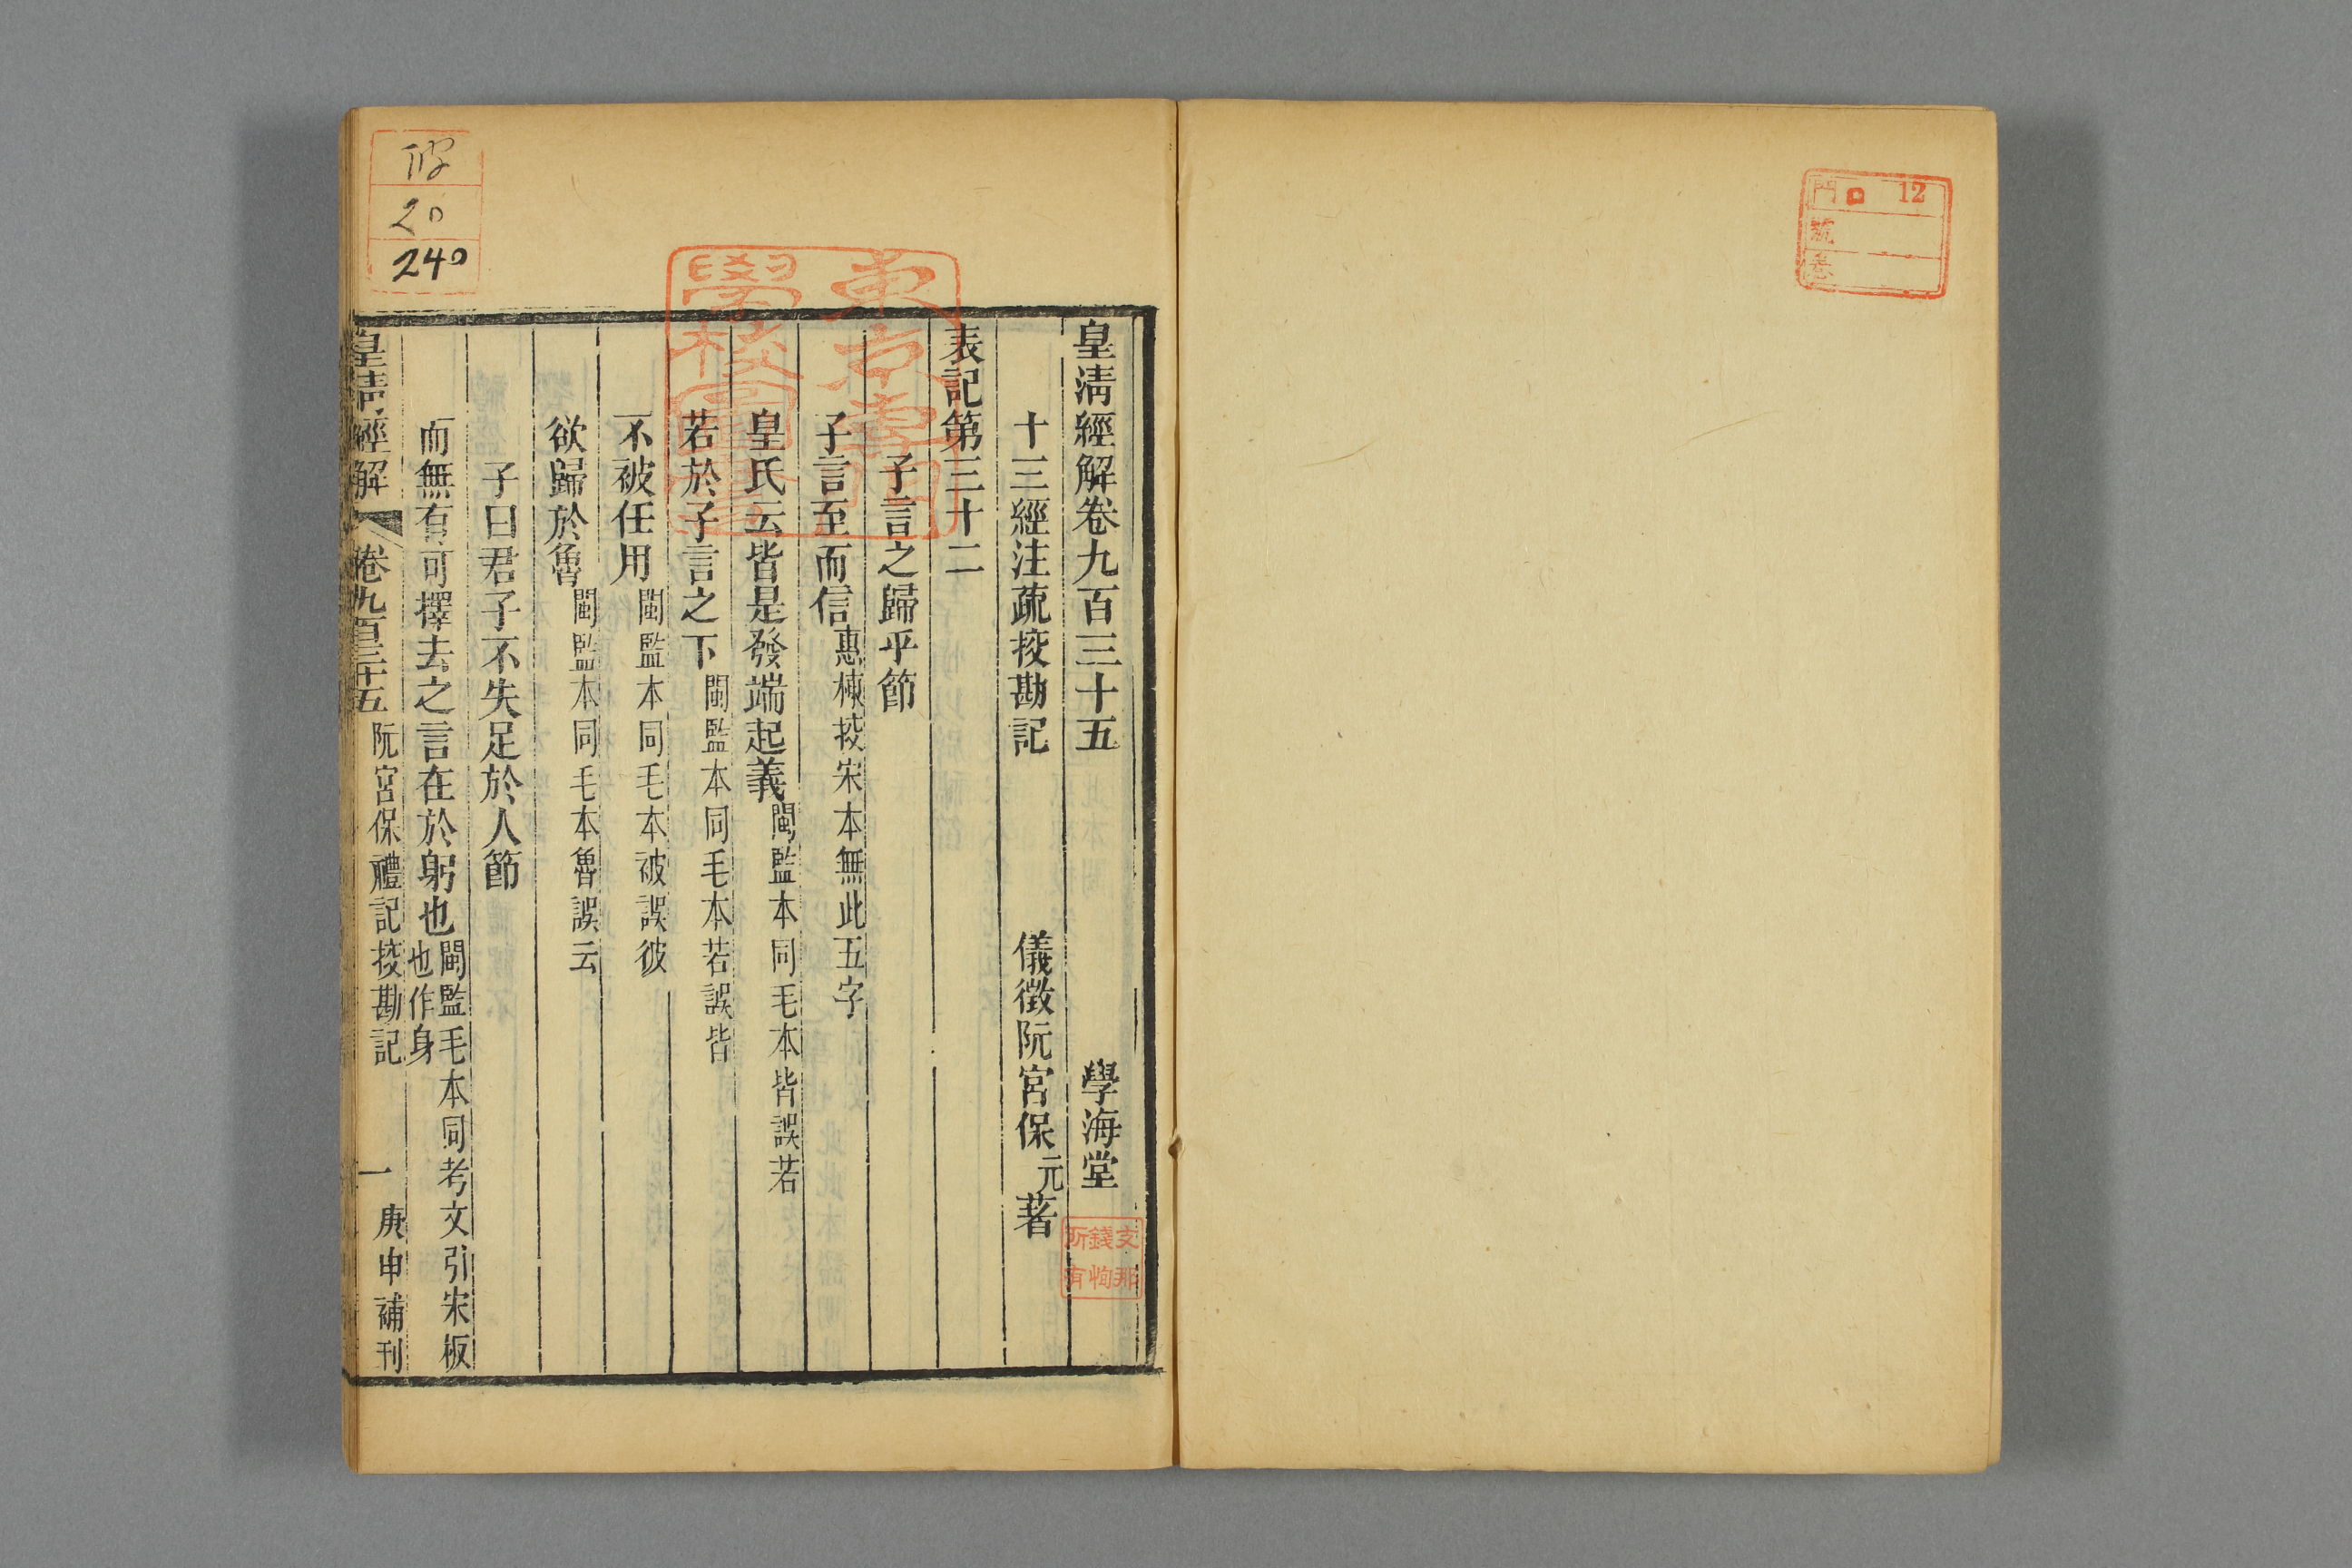 門 口 12
號
巻
皇清經解卷九百三十五 學海堂
十三經注疏挍勘記 儀徵阮宮保元著
表記第三十二
子言之歸乎節
子言至而信惠棟挍宋本無此五字
皇氏云皆是發端起義閩監本同毛本皆誤若
若於子言之下閩監本同毛本若誤皆
不被任用閩監本同毛本被誤彼
欲歸於魯閩監本同毛本魯誤云
子曰君子不失足於人節
而無有可擇去之言在於躬也閩監毛本同考文引宋板也作身
皇清經解 卷九百三十五 阮宮保禮記挍勘記 一 庚申補刊
東京專門
學校圖書
支那
錢恂
所有
20
240